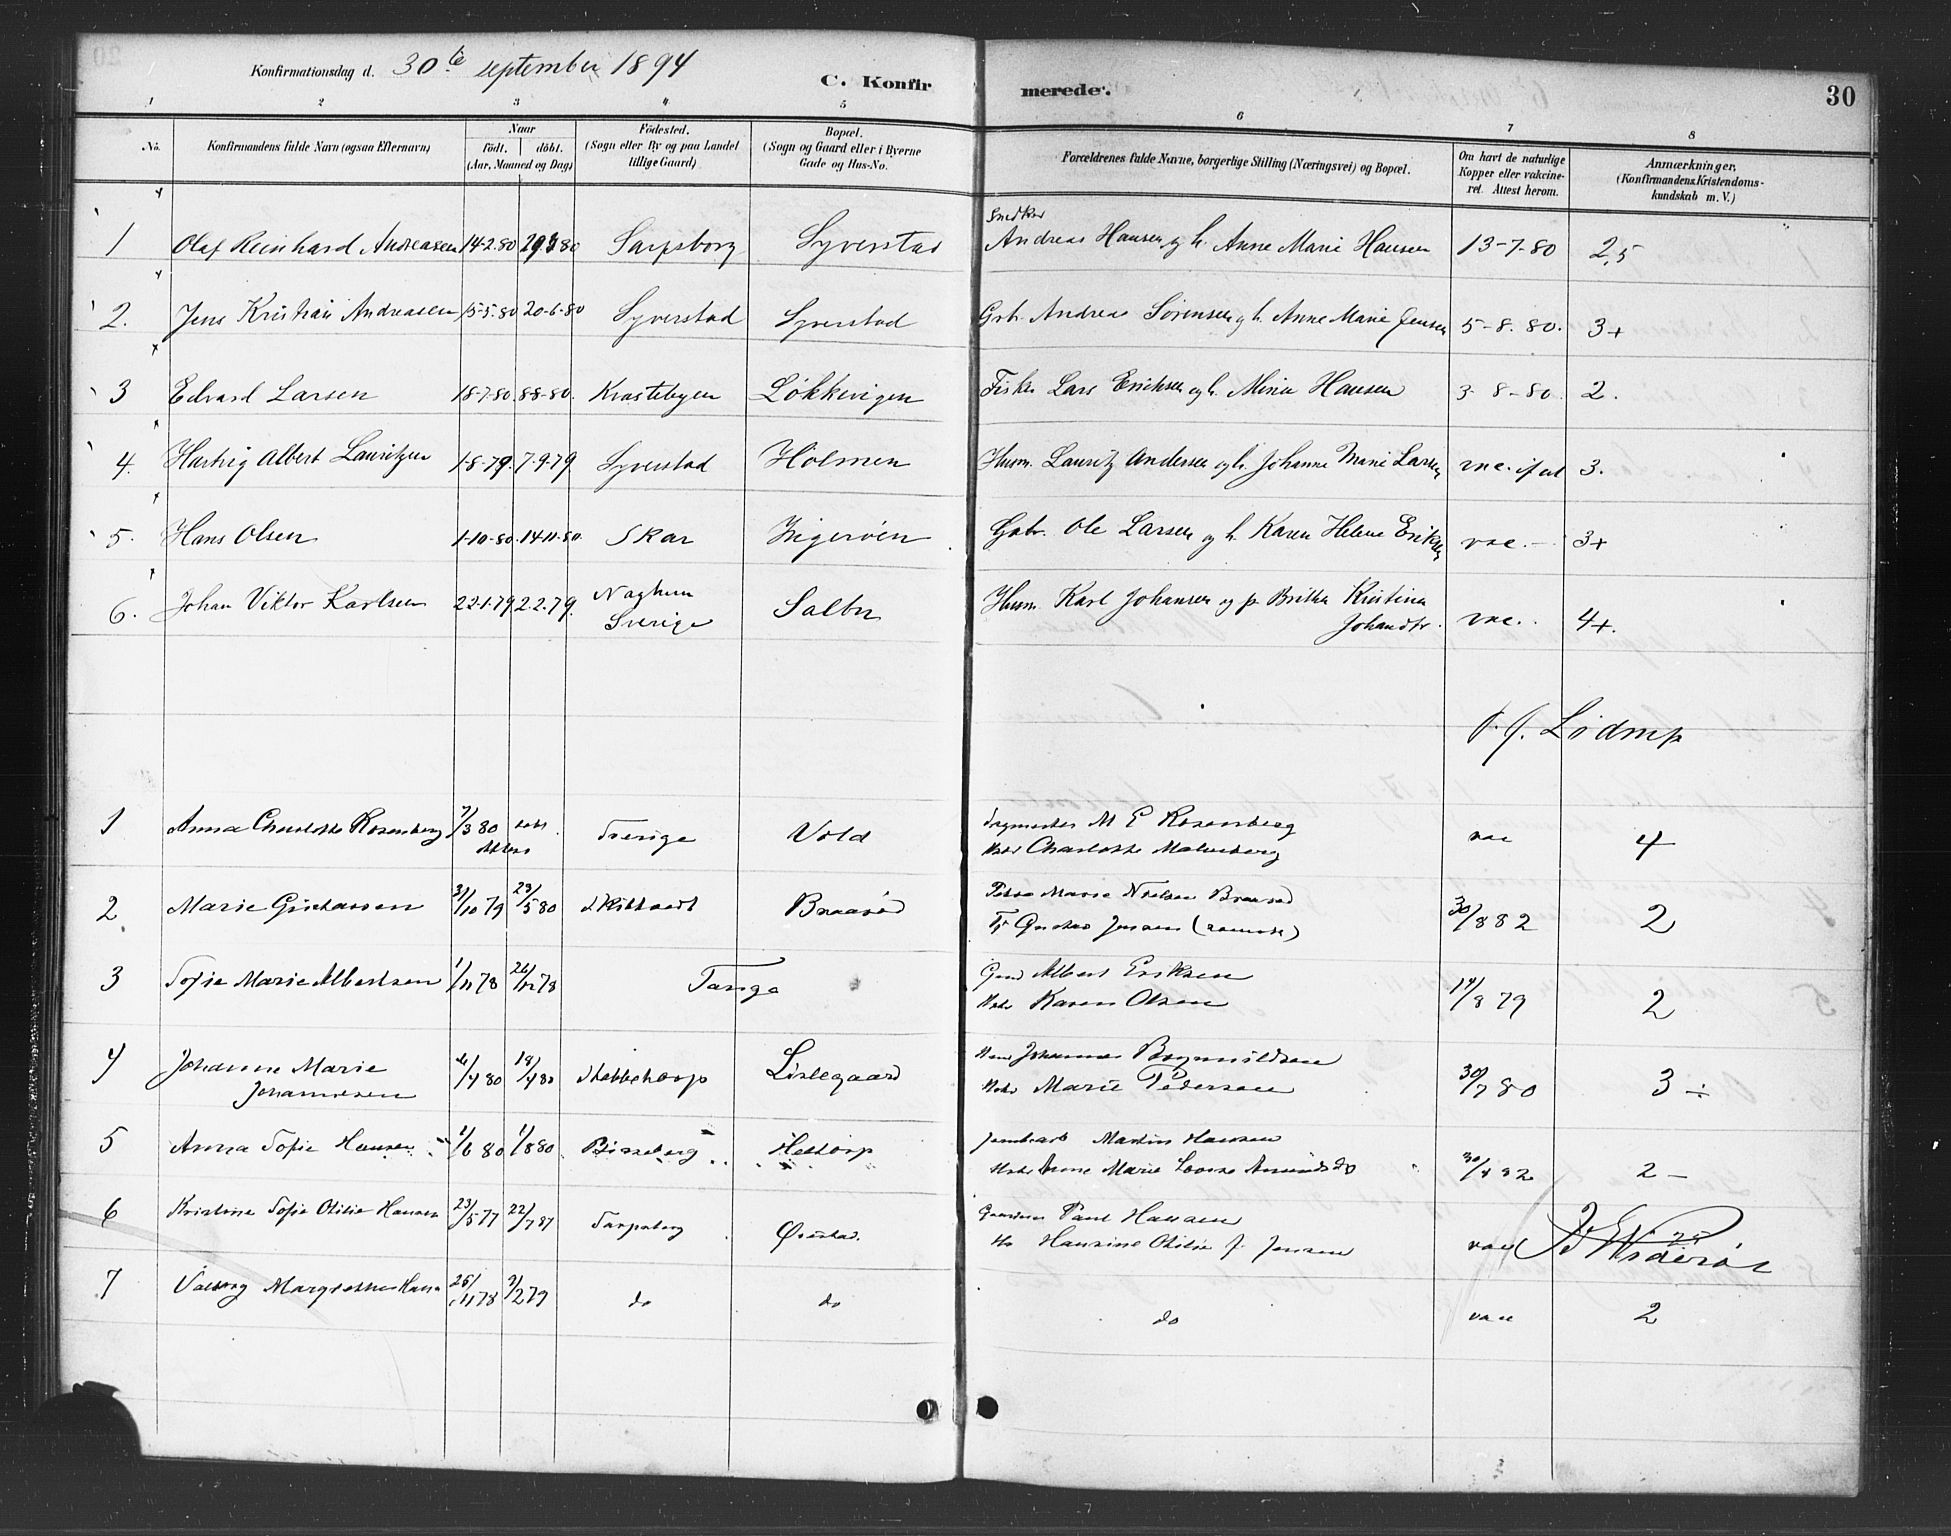 Konfirmationsdag d. 30te september 1894 C. Konfirmerede. 30
1 2 3 4 5 6 7 8
No. Konfirmandens fulde Navn (ogsaa Efternavn) Naar födt. döbt. (Aar, Maaned og Dag) Födested. (Sogn eller By og paa Landet tillige Gaard) Bopæl. (Sogn og Gaard eller i Byerne Gade og Hus-No. Forældrenes fulde Navne, borgerlige Stilling (Næringsvei) og Bopæl. Om havt de naturlige Kopper eller vakcineret. Attest herom. Anmærkninger. (Konfirmandens Kristendomskundskab m. V.)
Snedker
1 Olaf Reinhard Andreasen 14-2.80 Sarpsborg Syverstad Andreas Hansen og h. Anne Marie Hansen 13-7-80 2,5
2. Jens Kristian Andreasen 15-5.80 20-6-80 Syverstad Syverstad Gbr. Andreas Sörensen og h. Anne Marie Jensen 5-8.80. 3+
3 Edvard Larsen 18-7-80. 8-8-80. Løkkevigen Fisker Lars Eriksen og h. Mina Hansen 3-8-80. 2.
4. Hartvig Albert Lauritzen 1-8-79. 7-9-79 Syverstad Holmen Husm. Lauritz Andersen og h. Johanne Marie Larsen vac. if att 3.
5. Hans Olsen 1-10-80. 14-11-80. Skar Gbr. Ole Larsen og h. Karen Helene Eriksen vac. — 3+
6. Johan Viktor Karlsen 22-1-79 2-2-79. Naghum Sverige Husm. Karl Johansen og h. Britha Kristina
Johandtr. vac. 4+.
1 Anna Charlotte Rosenberg 7/3 80 Sverige Vold M E Rosenberg
Charlotte Malmberg vac 4
2 Marie Gustavsen 31/10 79 23/5 80 Skibtvedt Braarød Marie Nielsen Braarød
Gustav Jensen 30/8 82 2
3 Sofie Marie Albertsen 1/11 78 26/12 78 Tange Albert Eriksen
Karen Olsen 14/8 79 2
4 Johanne Marie
Johannesen 6/4 80 18/4 80 Stabbetorp Lislegaard Johannes
Marie Pedersen 30/7 80 3 ÷
5 Anna Sofie Hansen 1/6 80 1/8 80 Heltorp Martin Hansen
Anne Marie Lovise 2 —
6 Kristine Sofie Otilie Hansen 23/5 77 22/7 87 Sarpsborg Ørestad. Paul Hansen
Hansine Otilie J. Jensen vac
7 Valborg Margrethe Hansen 26/11 78 9/2 79 do do do vac 2